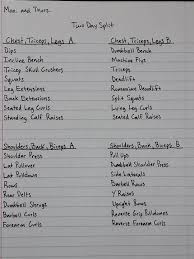 Mon. and Thurs.
Two Day Split
Chest, Triceps, Legs A
Dips
Decline Bench
Tricep Skull Crushers
Squats
Leg Extensions
Bench Extensions
Seated Leg Curls
Standing Calf Raises
Chest, Triceps, Legs B
Dumbbell Bench
Machine Flys
Triceps
Deadlift
Romanian Deadlift
Split Squats
Leg Curls
Seated Leg Curls
Shoulders, Back, Biceps A
Shoulder Press
Lat Pullover
Lat Pulldown
Rows
Rear Delts
Dumbbell Shrugs
Barbell Curls
Forearm Curls
Shoulders, Back, Biceps B
Pull Ups
Dumbbell Shoulder Press
Side Laterals
Barbell Rows
Y Raises
Upright Rows
Reverse Grip
Reverse Forearm Curls